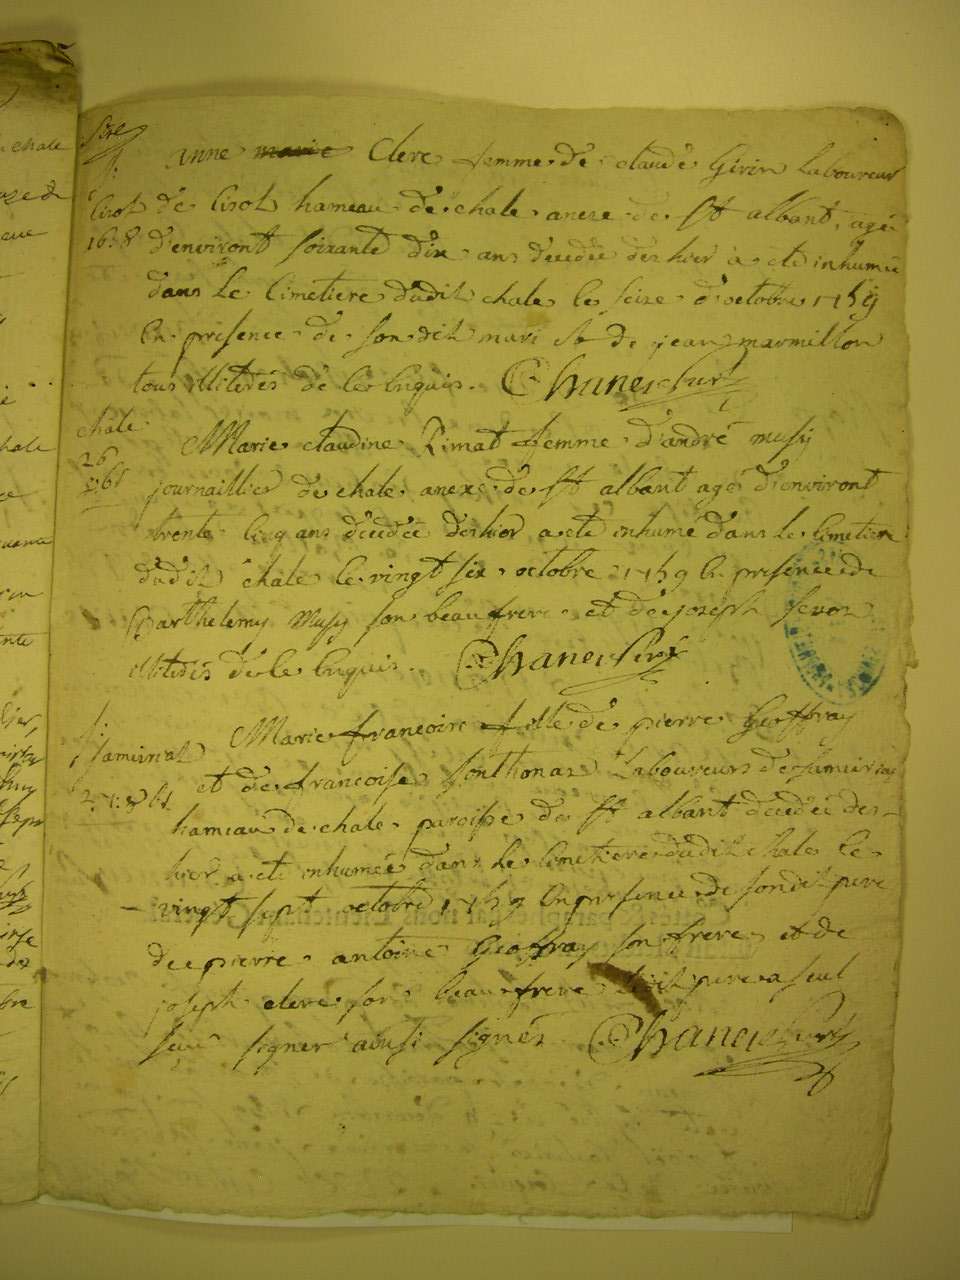 Anne marie Clerc femme de claude Girin Laboureur
Cirot
de Cirot hameau de chale anexe de st albant, agée
d'environt soixante dix ans decedée d'es hier a eté inhumée
dans le Cimetiere dudit chale le seize d'octobre 1759
En presence de son dit mari & de jean marmillon
tous illiterés de ce Enquis. Chanei Curé
chale
26
Marie claudine Rimat femme d'andré musy
journaillier de chale anexe de st albant agé d'environt
trente Cinq ans décédée d'es hier a eté inhumé dans le Cimetiere
dudit chale le vingt six octobre 1759 En presence de
Barthelemy Musy son beaufrere et de joseph
illiterés de ce Enquis. Chanei Curé
Marie francoise fille de pierre Geoffray
et de francoise Laboureurs de
hameau de chale paroisse de st albant décédée des
hier a eté inhumée dans le Cimetiere dudit chale le
vingt sept octobre 1759 En presence de son dit pere
de pierre antoine Geoffray son frere et de
joseph clerc son beaufrere pere a seul
seu signer aussi signés Chanei Curé